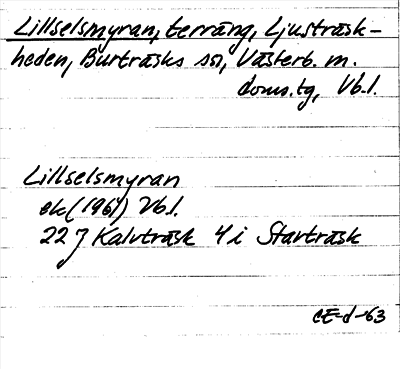 Lillselsmyran, terräng, Ljusträsk-
heden, Burträsks sn, Västerb. m.
doms.tg, Vb.l.
Lillselsmyran
ek (1961) Vb.l.
22 J Kalvträsk 4 i Starträsk
CE-d-63